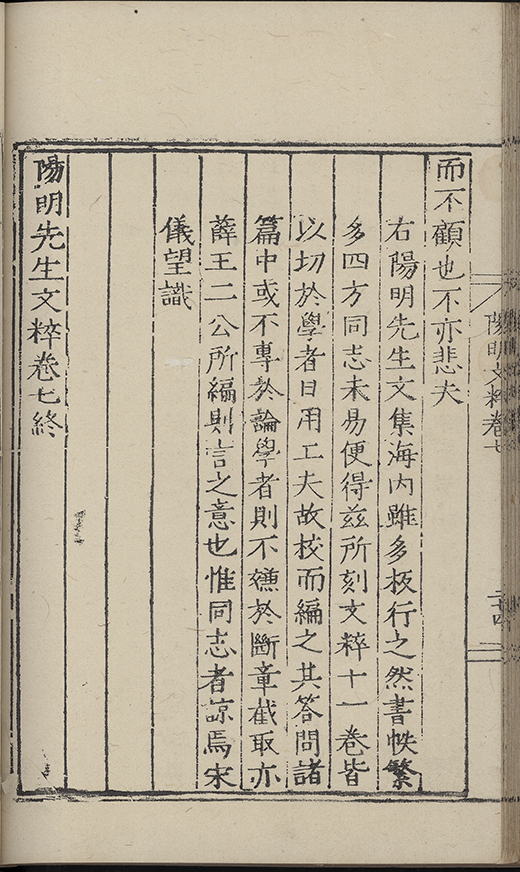 而不顧也不亦悲夫
右陽明先生文集海内雖多板行之然書帙繁
多四方同志未易便得兹所刻文粹十一卷皆
以切於學者日用工夫故校而編之其答問諸
篇中或不專於論學者則不嫌於斷章截取亦
薛王二公所編則言之意也惟同志者諒焉宋
儀望識
陽明先生文粹卷七終
陽明文粹卷七
二十四